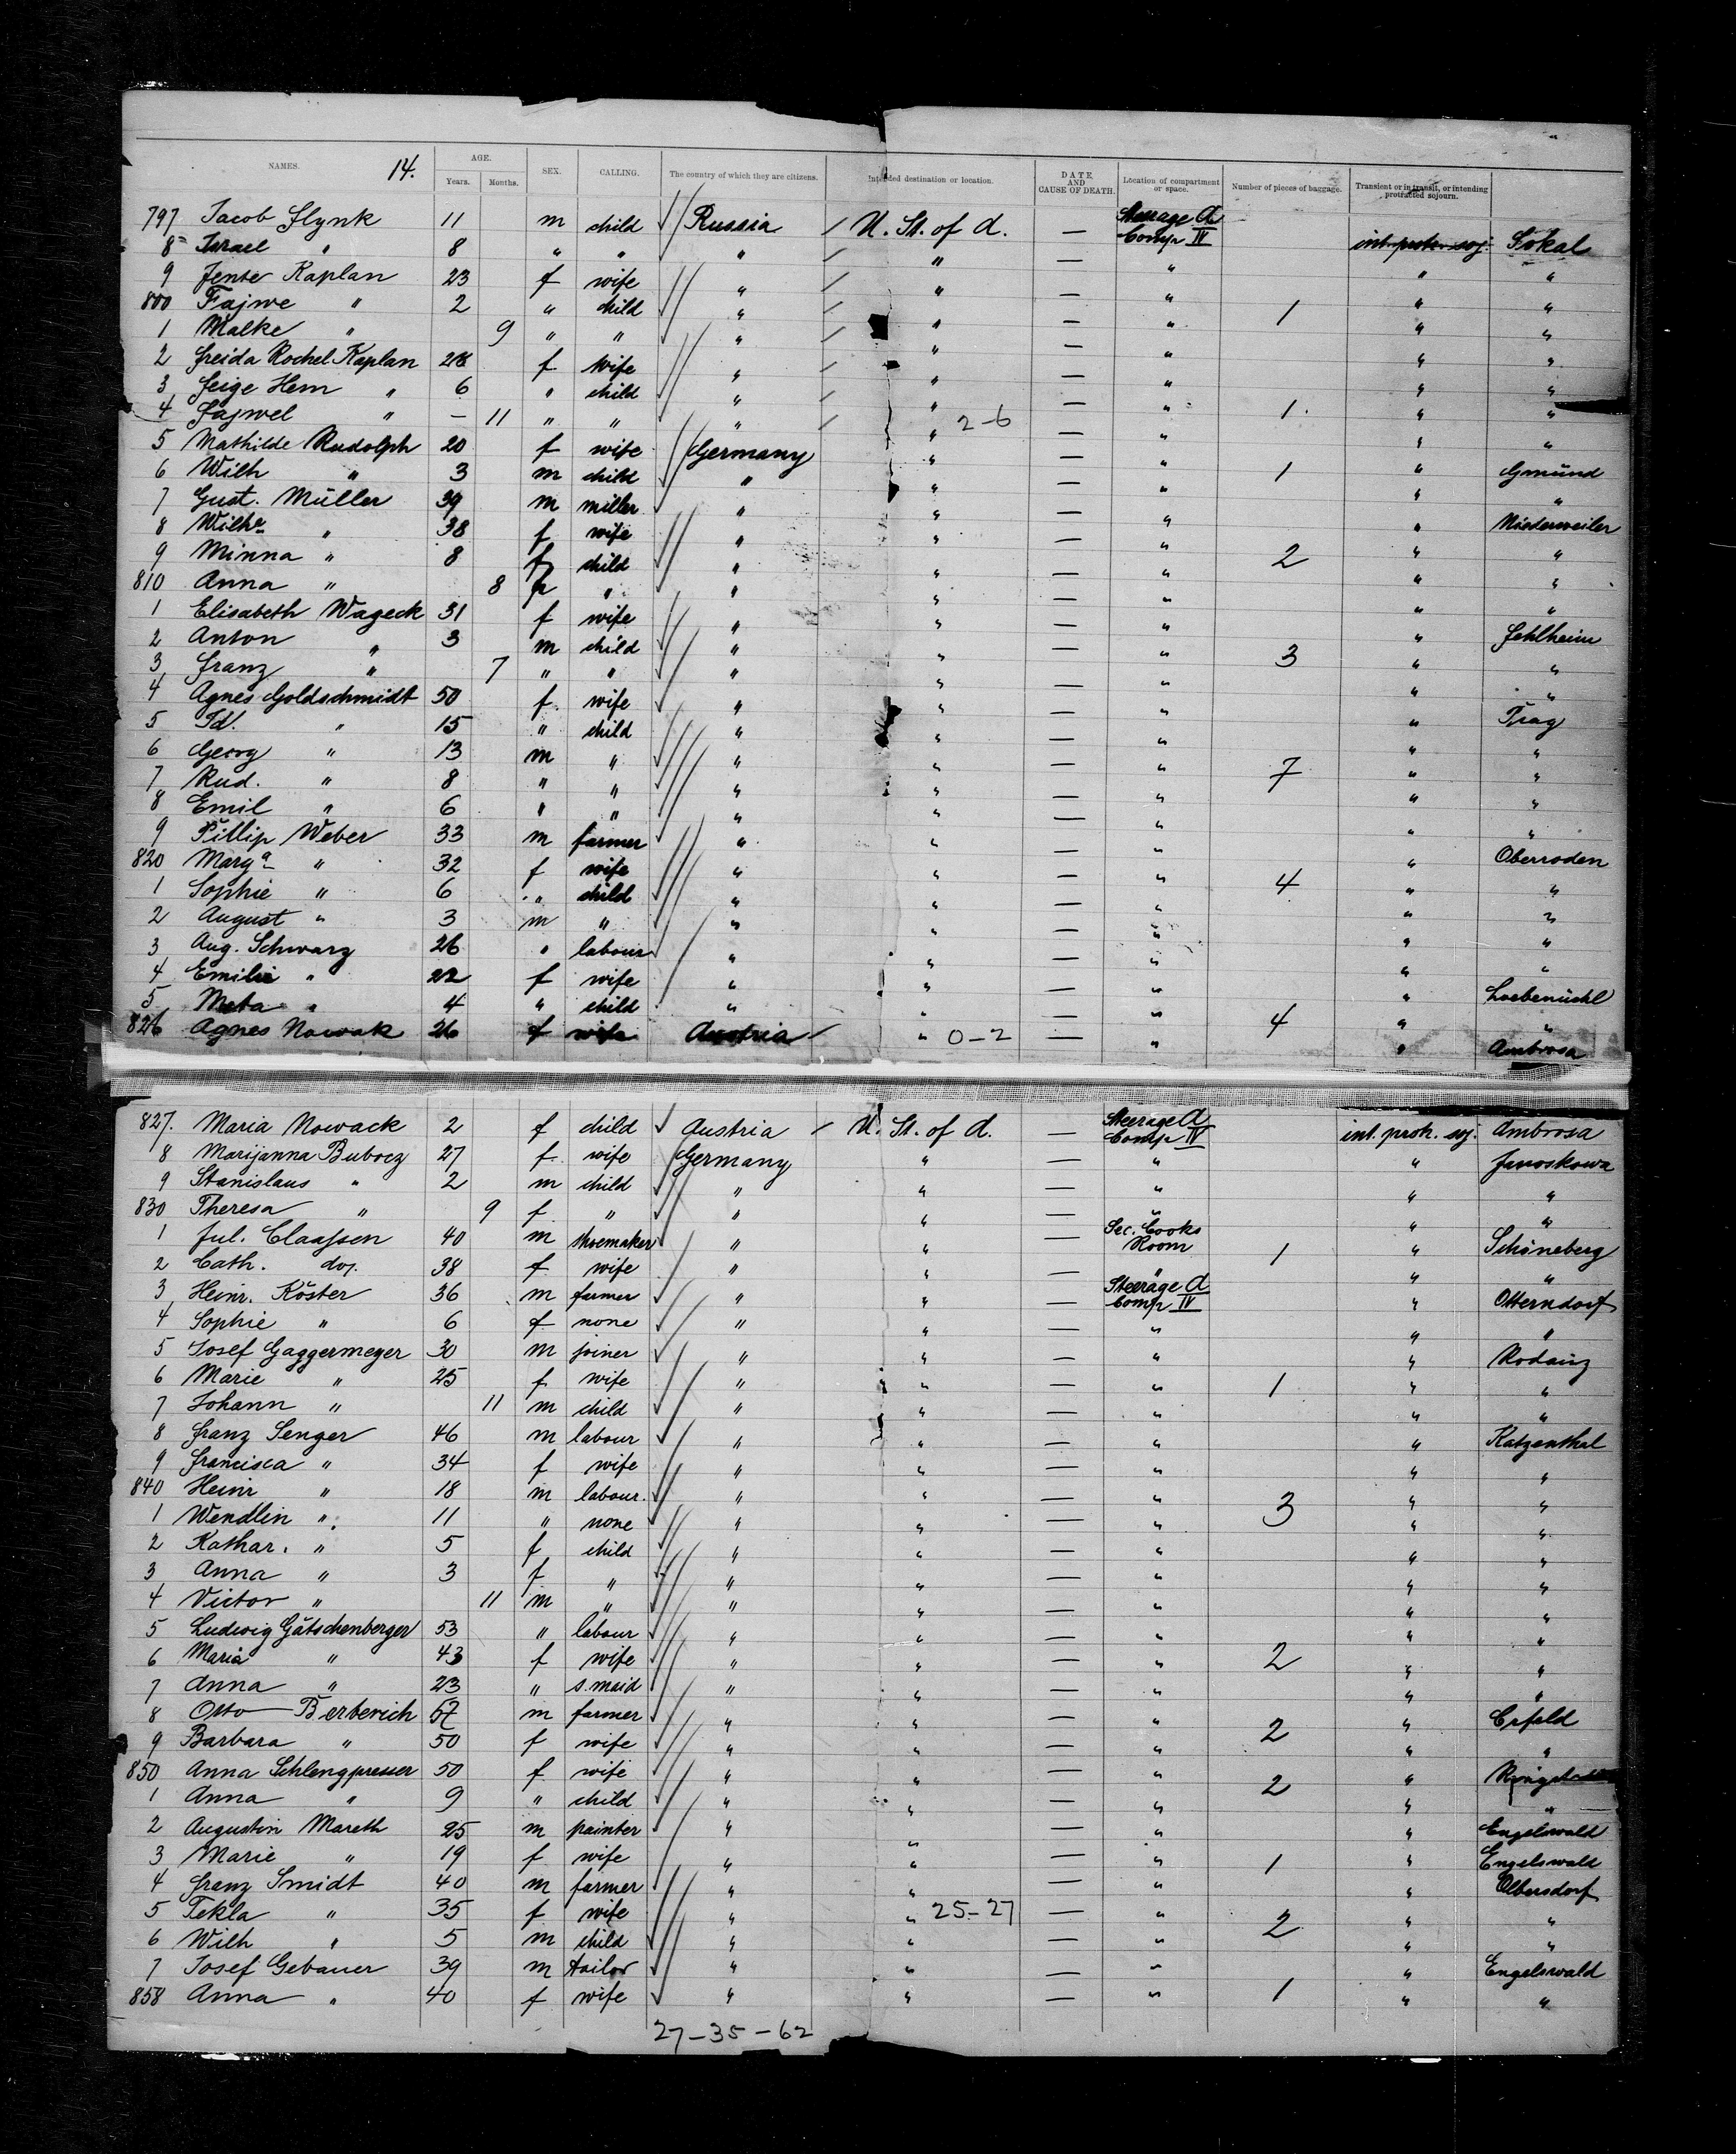 NAMES. 14. AGE. Years. Months. SEX. CALLING. The country of which they are citizens. Intended destination or location. DATE AND CAUSE OF DEATH. Location of compartment or space. Number of pieces of baggage. Transient or in transit, or intending protracted sojourn.
797 Jacob Slynk 11 m child Russia / U. St. of A. — Steerage A Comp IV int. protr. soj. Sokal
8 Israel " 8 " " " / " — " " "
9 Jente Kaplan 23 f wife " / " — " " "
800 Fajwe " 2 " child " / " — " 1 " "
1 Malke " 9 " " " / " — " " "
2 Freida Rochel Kaplan 28 f wife " / " — " " "
3 Feige Hem " 6 " child " / " — " " "
4 Fajwel " — 11 " " " / " 2-6 — " 1. " "
5 Mathilde Rudolph 20 f wife Germany " — " " Gmünd
6 Wilh " 3 m child " " — " 1 " "
7 Gust. Müller 39 m miller " " — " " Niederweiler
8 Wilhe " 38 f wife " " — " " "
9 Minna " 8 f child " " — " 2 " "
810 Anna " 8 f " " " — " " "
1 Elisabeth Wageck 31 f wife " " — " " Fehlheim
2 Anton " 3 m child " " — " 3 " "
3 Franz " 7 " " " " — " " "
4 Agnes Goldschmidt 50 f wife " " — " " Prag
5 Id. " 15 " child " " — " " "
6 Georg " 13 m " " " — " 7 " "
7 Rud. " 8 " " " " — " " "
8 Emil " 6 " " " " — " " "
9 Pillip Weber 33 m farmer " " — " " Oberroden
820 Marga " 32 f wife " " — " 4 " "
1 Sophie " 6 " child " " — " " "
2 August " 3 m " " " — " " "
3 Aug. Schwarz 26 " labour " " — " "
4 Emilie " 22 f wife " " — " "
5 Meta " 4 " child " " — " 4 " "
826 Agnes Nowak 26 f wife Austria / " 0-2 — " " Ambrosa
827. Maria Nowack 2 f child Austria / U. St. of A. — Steerage A Comp IV int. protr. soj. Ambrosa
8 Marijanna Bubocz 27 f wife Germany " — " " Janoskowa
9 Stanislaus " 2 m child " " — " " "
830 Theresa " 9 f " " " — " " "
1 Jul. Claassen 40 m shoemaker " " — Sec. Cooks Room 1 " Schöneberg
2 Cath. do. 38 f wife " " — " " "
3 Heinr. Köster 36 m farmer " " — Steerage A Comp IV " Otterndorf
4 Sophie " 6 f none " " — " " "
5 Josef Gaggermeyer 30 m joiner " " — " "
6 Marie " 25 f wife " " — " 1 " "
7 Johann " 11 m child " " — " " "
8 Franz Senger 46 m labour " " — " " Katzenthal
9 Francisca " 34 f wife " " — " " "
840 Heinr " 18 m labour. " " — " 3 " "
1 Wendlin " 11 " none " " — " " "
2 Kathar. " 5 f child " " — " " "
3 Anna " 3 f " " " — " " "
4 Victor " 11 m " " " — " " "
5 Ludwig Götschenberger 53 " labour " " — " " "
6 Maria " 43 f wife " " — " 2 " "
7 Anna " 23 " s. maid " " — " " "
8 Otto Berberich 57 m farmer " " — " " Erfeld
9 Barbara " 50 f wife " " — " 2 " "
850 Anna Schlengpresser 50 f wife " " — " 2 "
1 Anna " 9 " child " " — " " "
2 Augustin Mareth 25 m painter " " — " " Engelswald
3 Marie " 19 f wife " " — " 1 " Engelswald
4 Franz Smidt 40 m farmer " " — " " Olbersdorf
5 Tekla " 35 f wife " " 25-27 — " 2 " "
6 Wilh " 5 m child " " — " " "
7 Josef Gebauer 39 m tailor " " — " " Engelswald
858 Anna " 40 f wife " " — " 1 " "
27-35-62